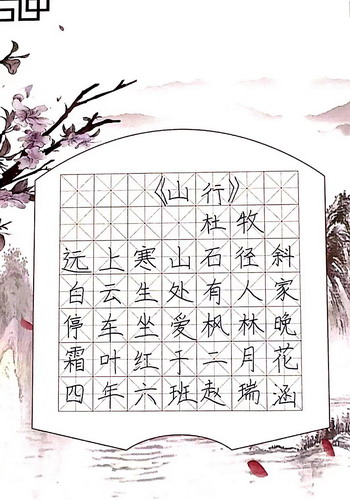 《山行》
杜牧
远上寒山石径斜
白云生处有人家
停车坐爱枫林晚
霜叶红于二月花
四年六班赵瑞涵